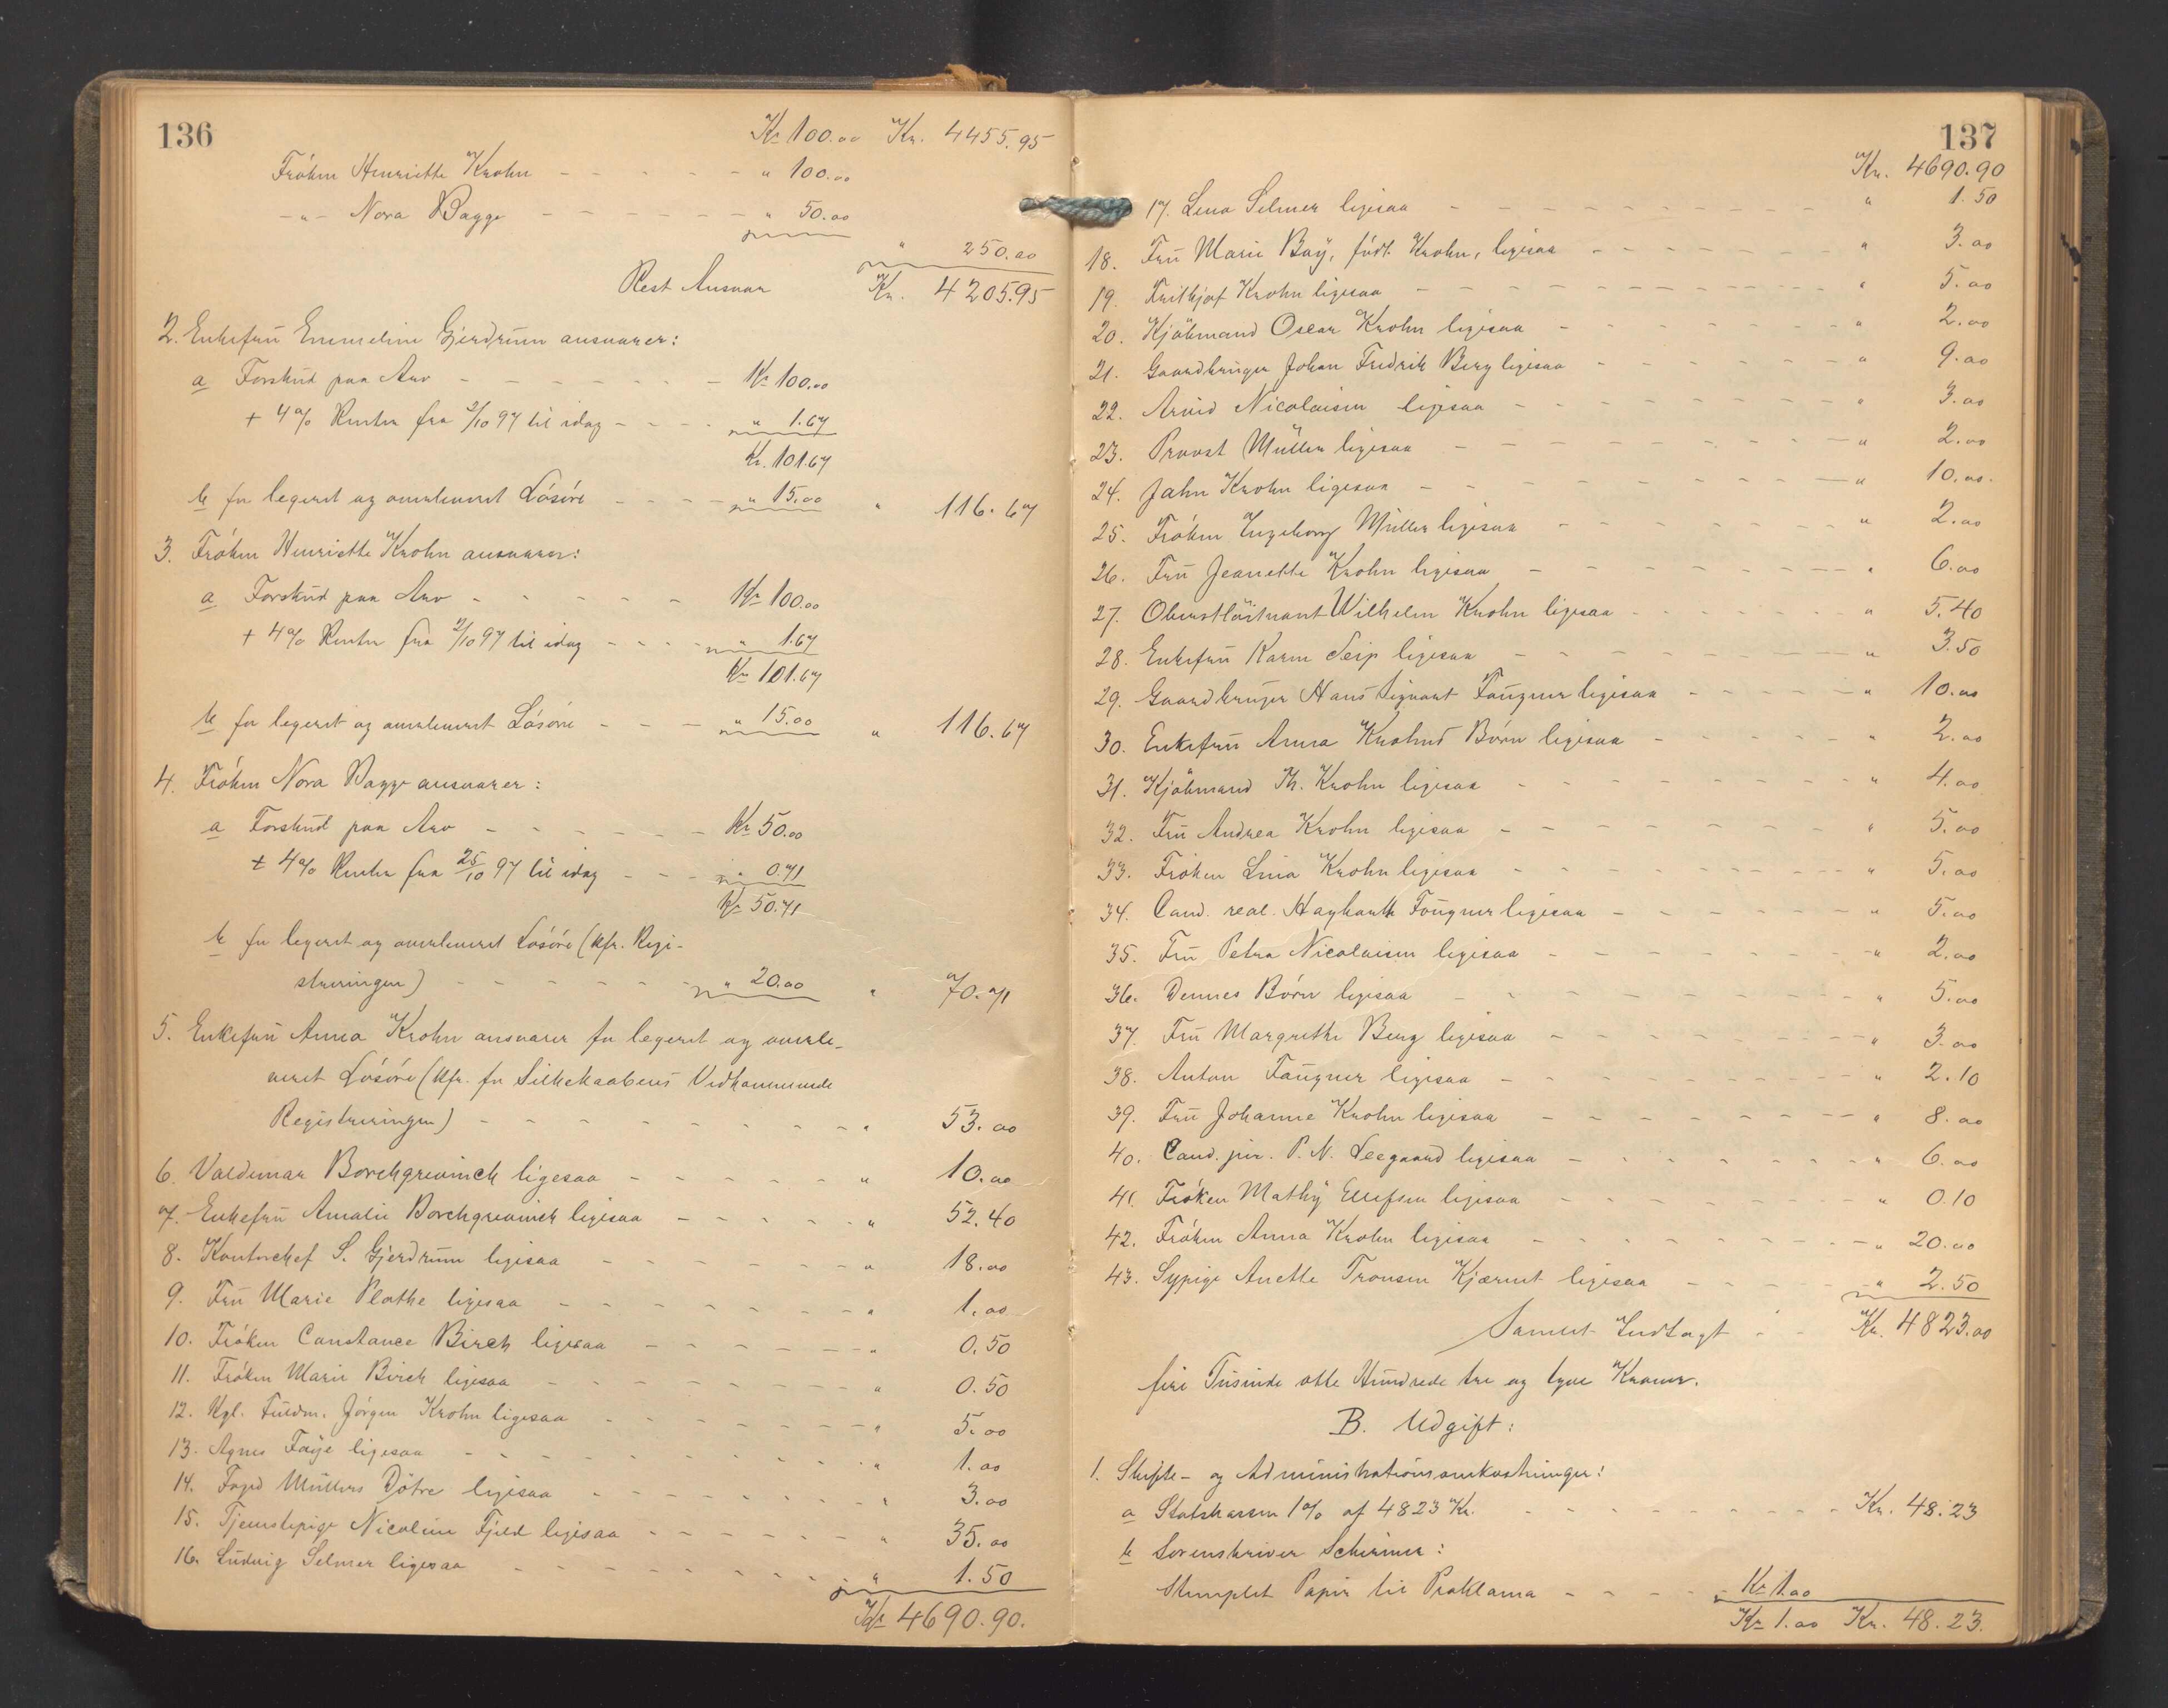 136
Kr 100.00 Kr. 4455.95
Fröken Henriette Krohn - - - - - " 100.00
-"- Nora Bagge - - - - - - " 50.00
" 250.00
Rest Ansvar Kr. 4205.95
2. Enkefru Emmeline Gjerdrum ansvarer:
a Forskud paa Arv - - - - - - Kr 100.00
+ 4% Renter fra 2/10 97 til idag - - - - " 1.67
Kr. 101.67
b for legeret og overleveret Lösöre - - - - " 15.00 " 116.67
3. Fröken Henriette Krohn ansvarer:
a Forskud paa Arv - - - - - Kr 100.00
+ 4% Renter fra 2/10 97 til idag - - - - " 1.67
Kr 101.67
b for legeret og overleveret Lösöre - - - " 15.00 " 116.67
4. Fröken Nora Bagge ansvarer:
a Forskud paa Arv - - - - - - Kr 50.00
+ 4% Renter fra 25/10 97 til idag - - - " 0.71
Kr 50.71
b for legeret og overleveret Lösöre (kfr. Regi-
streringen) - - - - - - " 20.00 " 70.71
5. Enkefru Anna Krohn ansvarer for legeret og overle-
veret Lösöre (kfr. for Silkekaabens Vedkommende
Registreringen) - - - - - - - - - " 53.00
6. Valdemar Borchgrevinck ligesaa - - - - - " 10.00
7. Enkefru Amalie Borchgrevinck ligesaa - - - - - " 52.40
8. Kontorchef S. Gjerdrum ligesaa - - - - - - " 18.00
9. Fru Marie Plathe ligesaa - - - - - - - " 1.00
10. Fröken Constance Birch ligesaa - - - - - - " 0.50
11. Fröken Marie Birch ligesaa - - - - - - - " 0.50
12. Kgl. Fuldm. Jörgen Krohn ligesaa - - - - - - " 5.00
13. Agnes Faye ligesaa - - - - - - - - " 1.00
14. Foged Müllers Dötre ligesaa - - - - - - - " 3.00
15. Tjenestepige Nicoline Fjeld ligesaa - - - - - - " 35.00
16. Ludvig Selmer ligesaa - - - - - - - - " 1.50
Kr 4690.90.
137
Kr. 4690.90
17. Lena Selmer ligesaa - - - - - - - - - " 1.50
18. Fru Marie Bay, födt Krohn, ligesaa - - - - - - " 3.00
19. Frithjof Krohn ligesaa - - - - - - - - - " 5.00
20. Kjöbmand Oscar Krohn ligesaa - - - - - - - " 2.00
21. Gaardbruger Johan Fredrik Berg ligesaa - - - - - - " 9.00
22. Arvid Nicolaisen ligesaa - - - - - - - - " 3.00
23. Provst Müller ligesaa - - - - - - - - " 2.00
24. John Krohn ligesaa - - - - - - - - - " 10.00.
25. Fröken Ingeborg Müller ligesaa - - - - - - - " 2.00
26. Fru Jeanette Krohn ligesaa - - - - - - - " 6.00
27. Oberstlöitnant Wilhelm Krohn ligesaa - - - - - - " 5.40
28. Enkefru Karen Seip ligesaa - - - - - - - " 3.50
29. Gaardbruger Hans Sigvart Fougner ligesaa - - - - - " 10.00
30. Enkefru Anna Krohns Börn ligesaa - - - - - " 2.00
31. Kjöbmand Th. Krohn ligesaa - - - - - - - " 4.00
32. Fru Andrea Krohn ligesaa - - - - - - - - " 5.00
33. Fröken Lina Krohn ligesaa - - - - - - - " 5.00
34. Cand. real. Hagharth Fougner ligesaa - - - - - - " 5.00
35. Fru Petra Nicolaisen ligesaa - - - - - - - " 2.00
36. Dennes Börn ligesaa - - - - - - - - " 5.00
37. Fru Margrethe Berg ligesaa - - - - - - - " 3.00
38. Anton Fougner ligesaa - - - - - - - - " 2.10
39. Fru Johanne Krohn ligesaa - - - - - - - " 8.00
40. Cand. jur. P. N. Seegaard ligesaa - - - - - - - " 6.00
41. Fröken Mathy Ellefsen ligesaa - - - - - - - " 0.10
42. Fröken Anna Krohn ligesaa - - - - - - - " 20.00
43. Sypige Anette Tronsen Kjærnet ligesaa - - - - - " 2.50
Samlet Indtægt - - Kr. 4823.00
fire Tusinde otte Hundrede tre og tyve Kroner.
B. Udgift:
1. Skifte- og Administrationsomkostninger:
a Statskassen 1% af 4823 Kr. - - - - - - - - Kr. 48.23
b Sorenskriver Schirmer:
Stemplet Papir til Proklama - - - - Kr 1.00
Kr 1.00 Kr. 48.23.